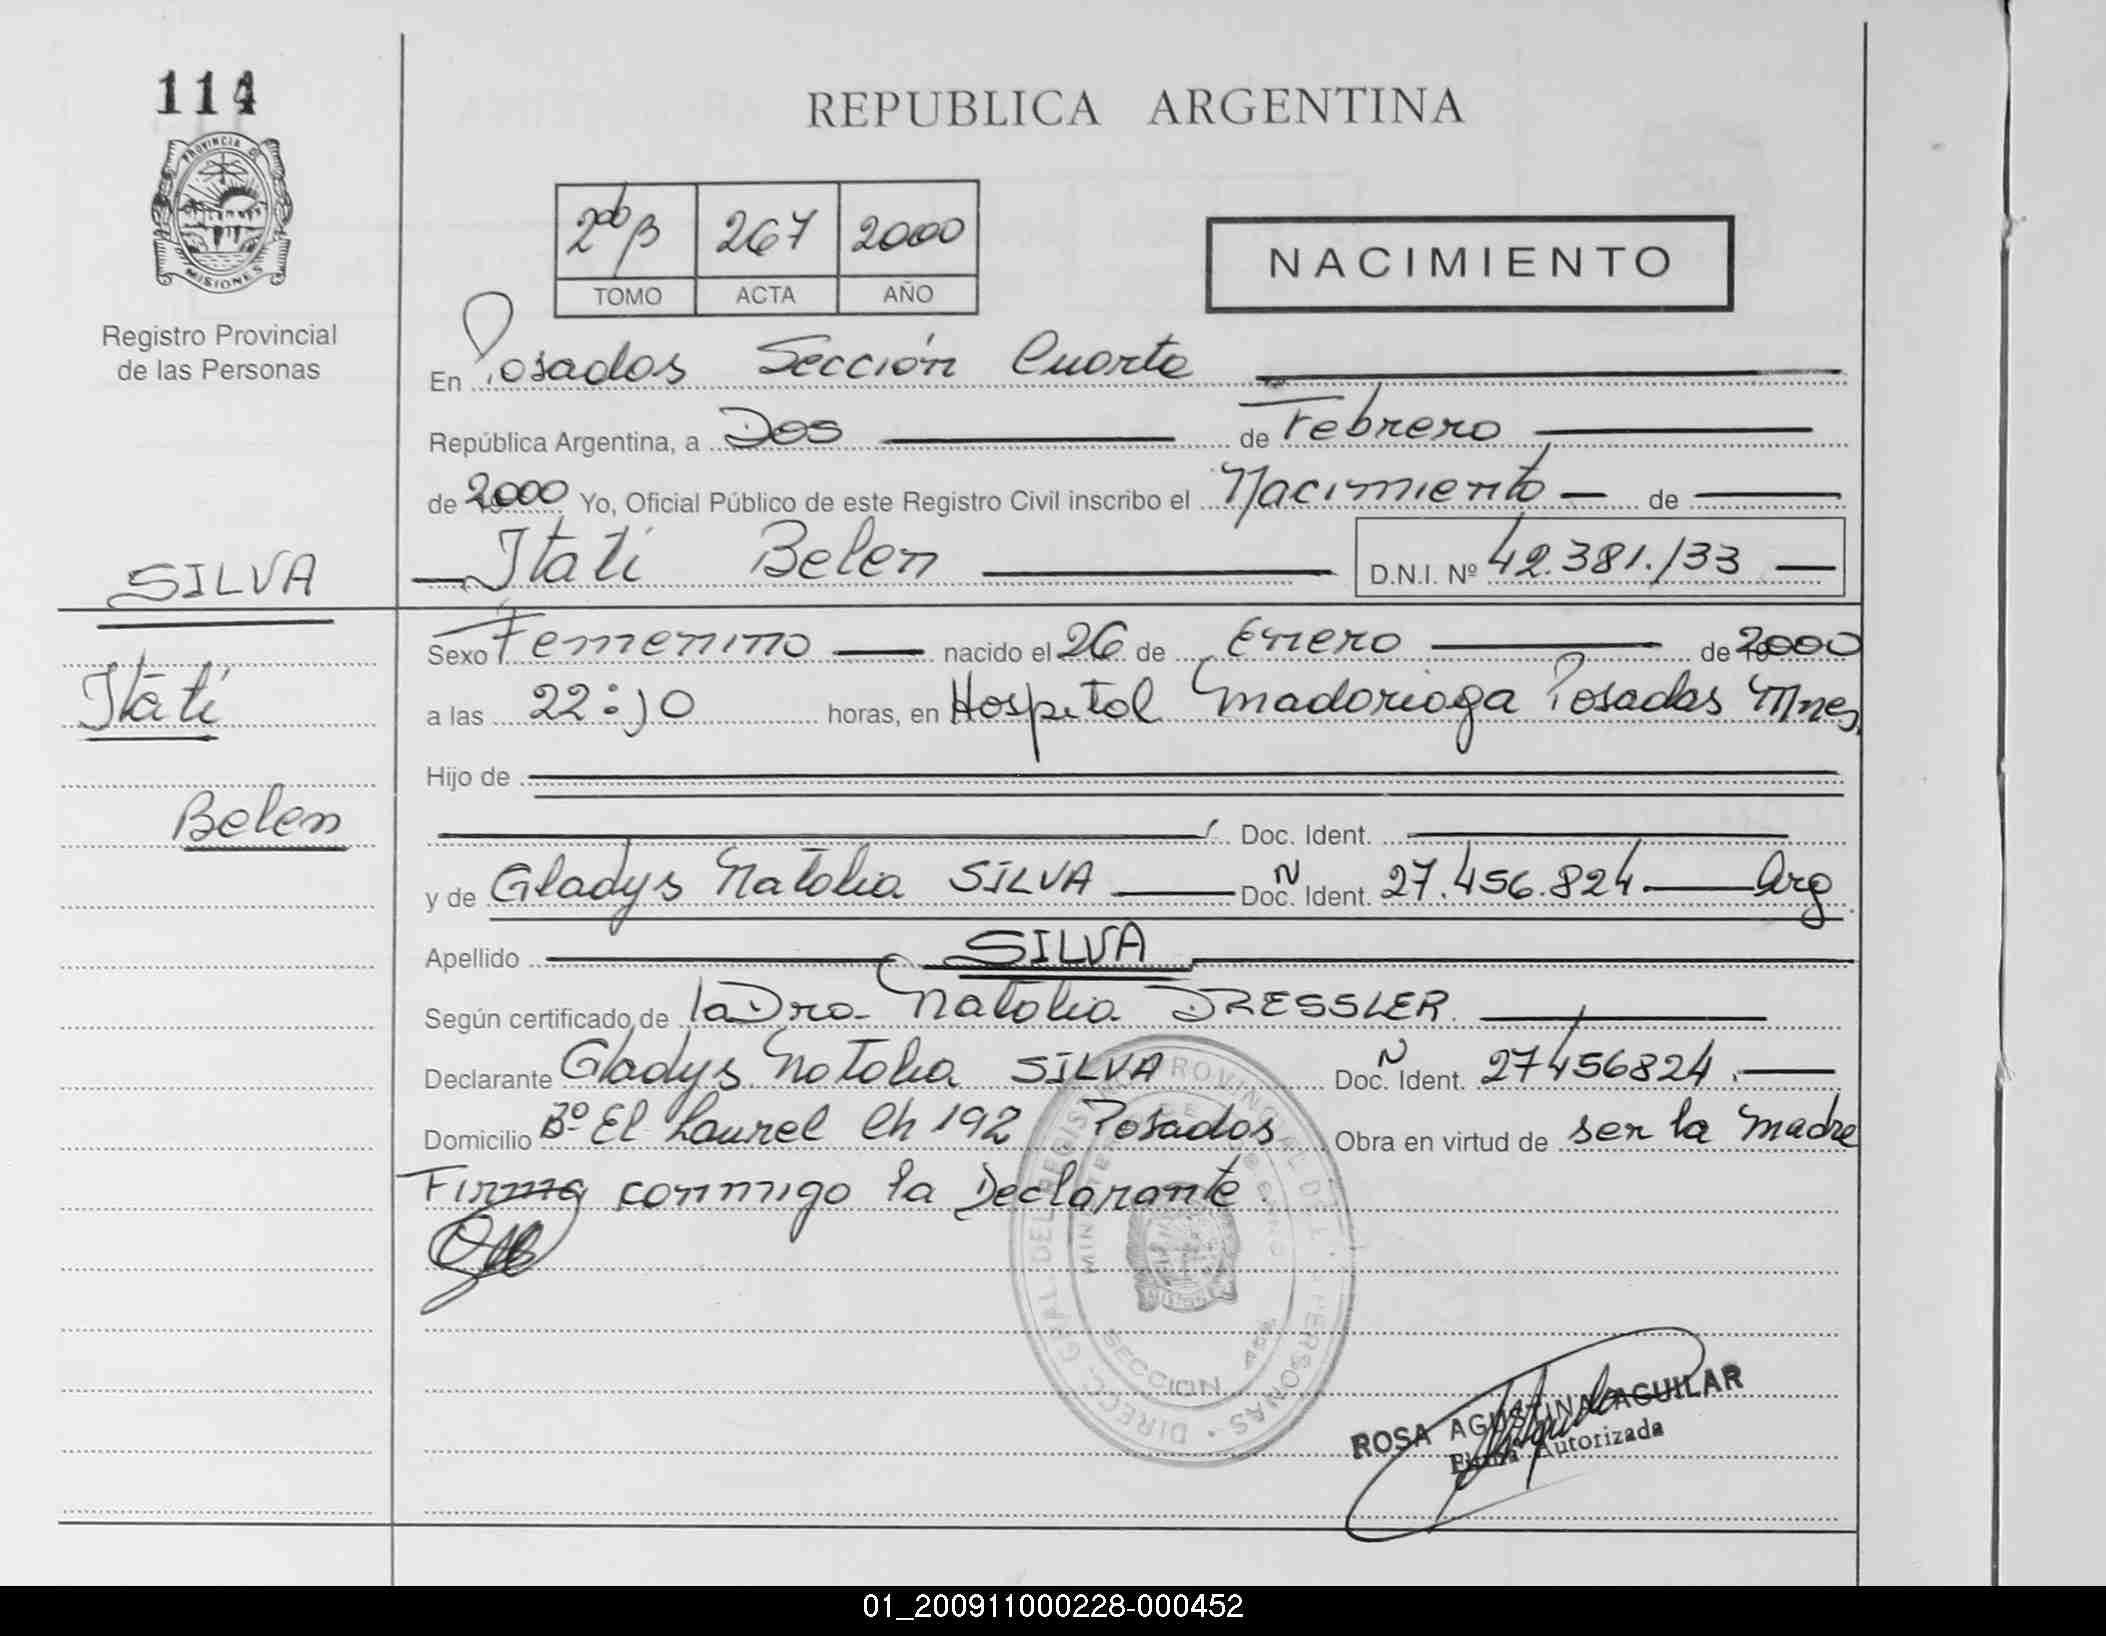 114
PROVINCIA DE
MISIONES
Registro Provincial
de las Personas
REPUBLICA ARGENTINA
267 2000
TOMO ACTA AÑO
NACIMIENTO
En Posadas Sección Cuarta
República Argentina, a Dos de Febrero
de 2000 Yo, Oficial Público de este Registro Civil inscribo el Nacimiento de
Itatí Belen D.N.I. Nº 42.381.133
SILVA
Itatí
Belen
Sexo Femenino nacido el 26 de Enero de 2000
a las 22:10 horas, en Hospital Madariaga Posadas Mnes
Hijo de
Doc. Ident.
y de Gladys Natalia SILVA Doc. Ident. 27.456.824 Arg
Apellido SILVA
Según certificado de la Dra. Natalia DRESSLER
Declarante Gladys Natalia SILVA Doc. Ident. 27456824
Domicilio Bº El Laurel Ch 192 Posadas Obra en virtud de ser la madre
Firma conmigo la Declarante
DIRECC. GRAL. DEL REGISTRO PROVINCIAL DE PERSONAS
SECCION
ROSA AGUSTINA AGUILAR
Firma Autorizada
01_200911000228-000452